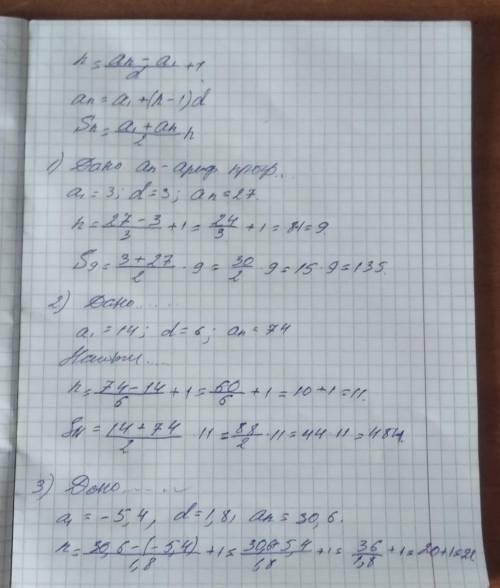 n = (an - a1)/d + 1.
an = a1 + (n-1)d
Sn = (a1 + an)/2 n
1) Дано an - ариф. прогр..
a1 = 3; d = 3; an = 27.
n = (27-3)/3 + 1 = 24/3 + 1 = 8+1 = 9
S9 = (3+27)/2 · 9 = 30/2 · 9 = 15 · 9 = 135.
2) Дано......
a1 = 14; d = 6; an = 74
Найти....
n = (74-14)/6 + 1 = 60/6 + 1 = 10+1 = 11.
S11 = (14+74)/2 · 11 = 88/2 · 11 = 44 · 11 = 484.
3) Дано......
a1 = -5,4, d = 1,8, an = 30,6.
n = (30,6-(-5,4))/1,8 + 1 = (30,6+5,4)/1,8 + 1 = 36/1,8 + 1 = 20+1=21